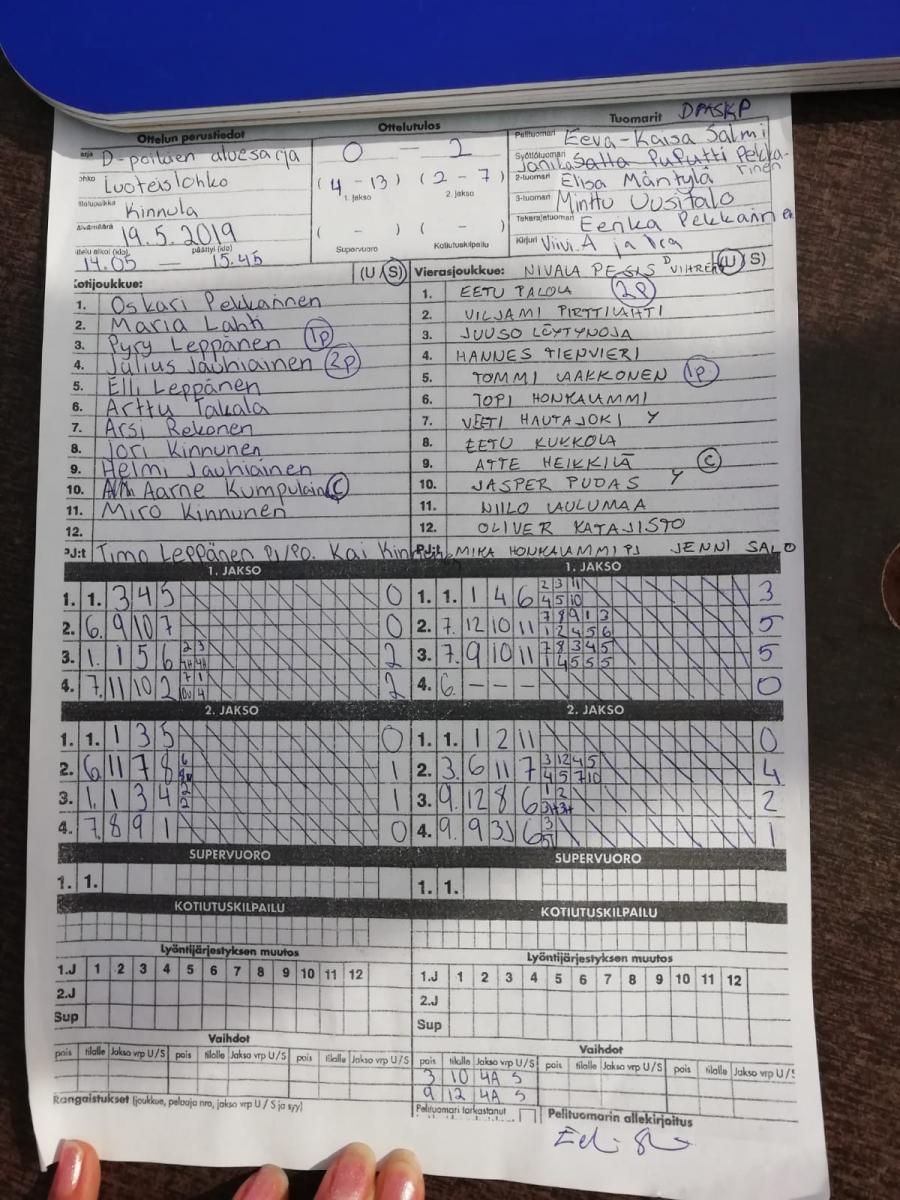 Ottelun perustiedot
Ottelutulos
Tuomarit DPASKP
D-poikien aluesarja
0 - 2
Pelituomari Eeva-Kaisa Salmi
Luoteislohko
(4 - 13) (2 - 7)
1. jakso 2. jakso
2-tuomari Elisa Mäntylä
3-tuomari Minttu Uusitalo
Kinnula
( - ) ( - )
Takarajatuomari Eerika Pekkarinen
19.5.2019
Supervuoro Kotiutuskilpailu
Kirjuri Viivi.A ja Ira
päättyi (klo)
14.05 — 15.45
Kotijoukkue: (U/S)
1. Oskari Pekkarinen
2. Maria Lahti
3. Pyry Leppänen 1p
4. Julius Jauhiainen 2p
5. Elli Leppänen
6. Arttu Takala
7. Arsi Rekonen
8. Jori Kinnunen
9. Helmi Jauhiainen
10. Aarne Kumpulain C
11. Miro Kinnunen
12.
PJ:t Timo Leppänen PJ/PO. Kai Kinnunen
Vierasjoukkue: NIVALA PESIS D VIHREÄ (U/S)
1. EETU PALOLA 2P
2. VILJAMI PIRTTILAHTI
3. JUUSO LÖYTYNOJA
4. HANNES TIENVIERI
5. TOMMI LAAKKONEN 1P
6. TOPI HONKALAMMI
7. VEETI HAUTAJOKI Y
8. EETU KUKKOLA
9. ATTE HEIKKILÄ C
10. JASPER PUDAS Y
11. NIILO LAULUMAA
12. OLIVER KATAJISTO
PJ:t MIKA HONKALAMMI PJ JENNI SALO
1. JAKSO
1. 1. 3 4 5 0
2. 6. 9 10 7 0
3. 1. 1 5 6 2
4. 7. 11 10 2 2
1. JAKSO
1. 1. 1 4 6 2 3 11 3
4 5 10
2. 7. 12 10 11 7 8 9 1 3 5
1 2 4 5 6
3. 7. 9 10 11 7 8 3 4 5 5
1 4 5 5 5
4. 6. - - - 0
2. JAKSO
1. 1. 1 3 5 0
2. 6. 11 7 8 1
3. 1. 1 3 4 2 1
2
4. 7. 8 9 1 0
2. JAKSO
1. 1. 1 2 11 0
2. 3. 6 11 7 3 12 4 5 4
4 5 7 10
3. 9. 12 8 6 1 2 2
3H 3H
4. 9. 9 3 6 3 1
SUPERVUORO
1. 1.
SUPERVUORO
1. 1.
KOTIUTUSKILPAILU
KOTIUTUSKILPAILU
Lyöntijärjestyksen muutos
1.J 1 2 3 4 5 6 7 8 9 10 11 12
2.J
Sup
Lyöntijärjestyksen muutos
1.J 1 2 3 4 5 6 7 8 9 10 11 12
2.J
Sup
Vaihdot
pois tilalle Jakso vrp U/S pois tilalle Jakso vrp U/S pois tilalle Jakso vrp U/S
Vaihdot
pois tilalle Jakso vrp U/S pois tilalle Jakso vrp U/S pois tilalle Jakso vrp U/S
3 10 4A S
9 12 4A S
Rangaistukset (joukkue, pelaaja nro, jakso vrp U / S ja syy)
Pelituomari tarkastanut
Pelituomarin allekirjoitus